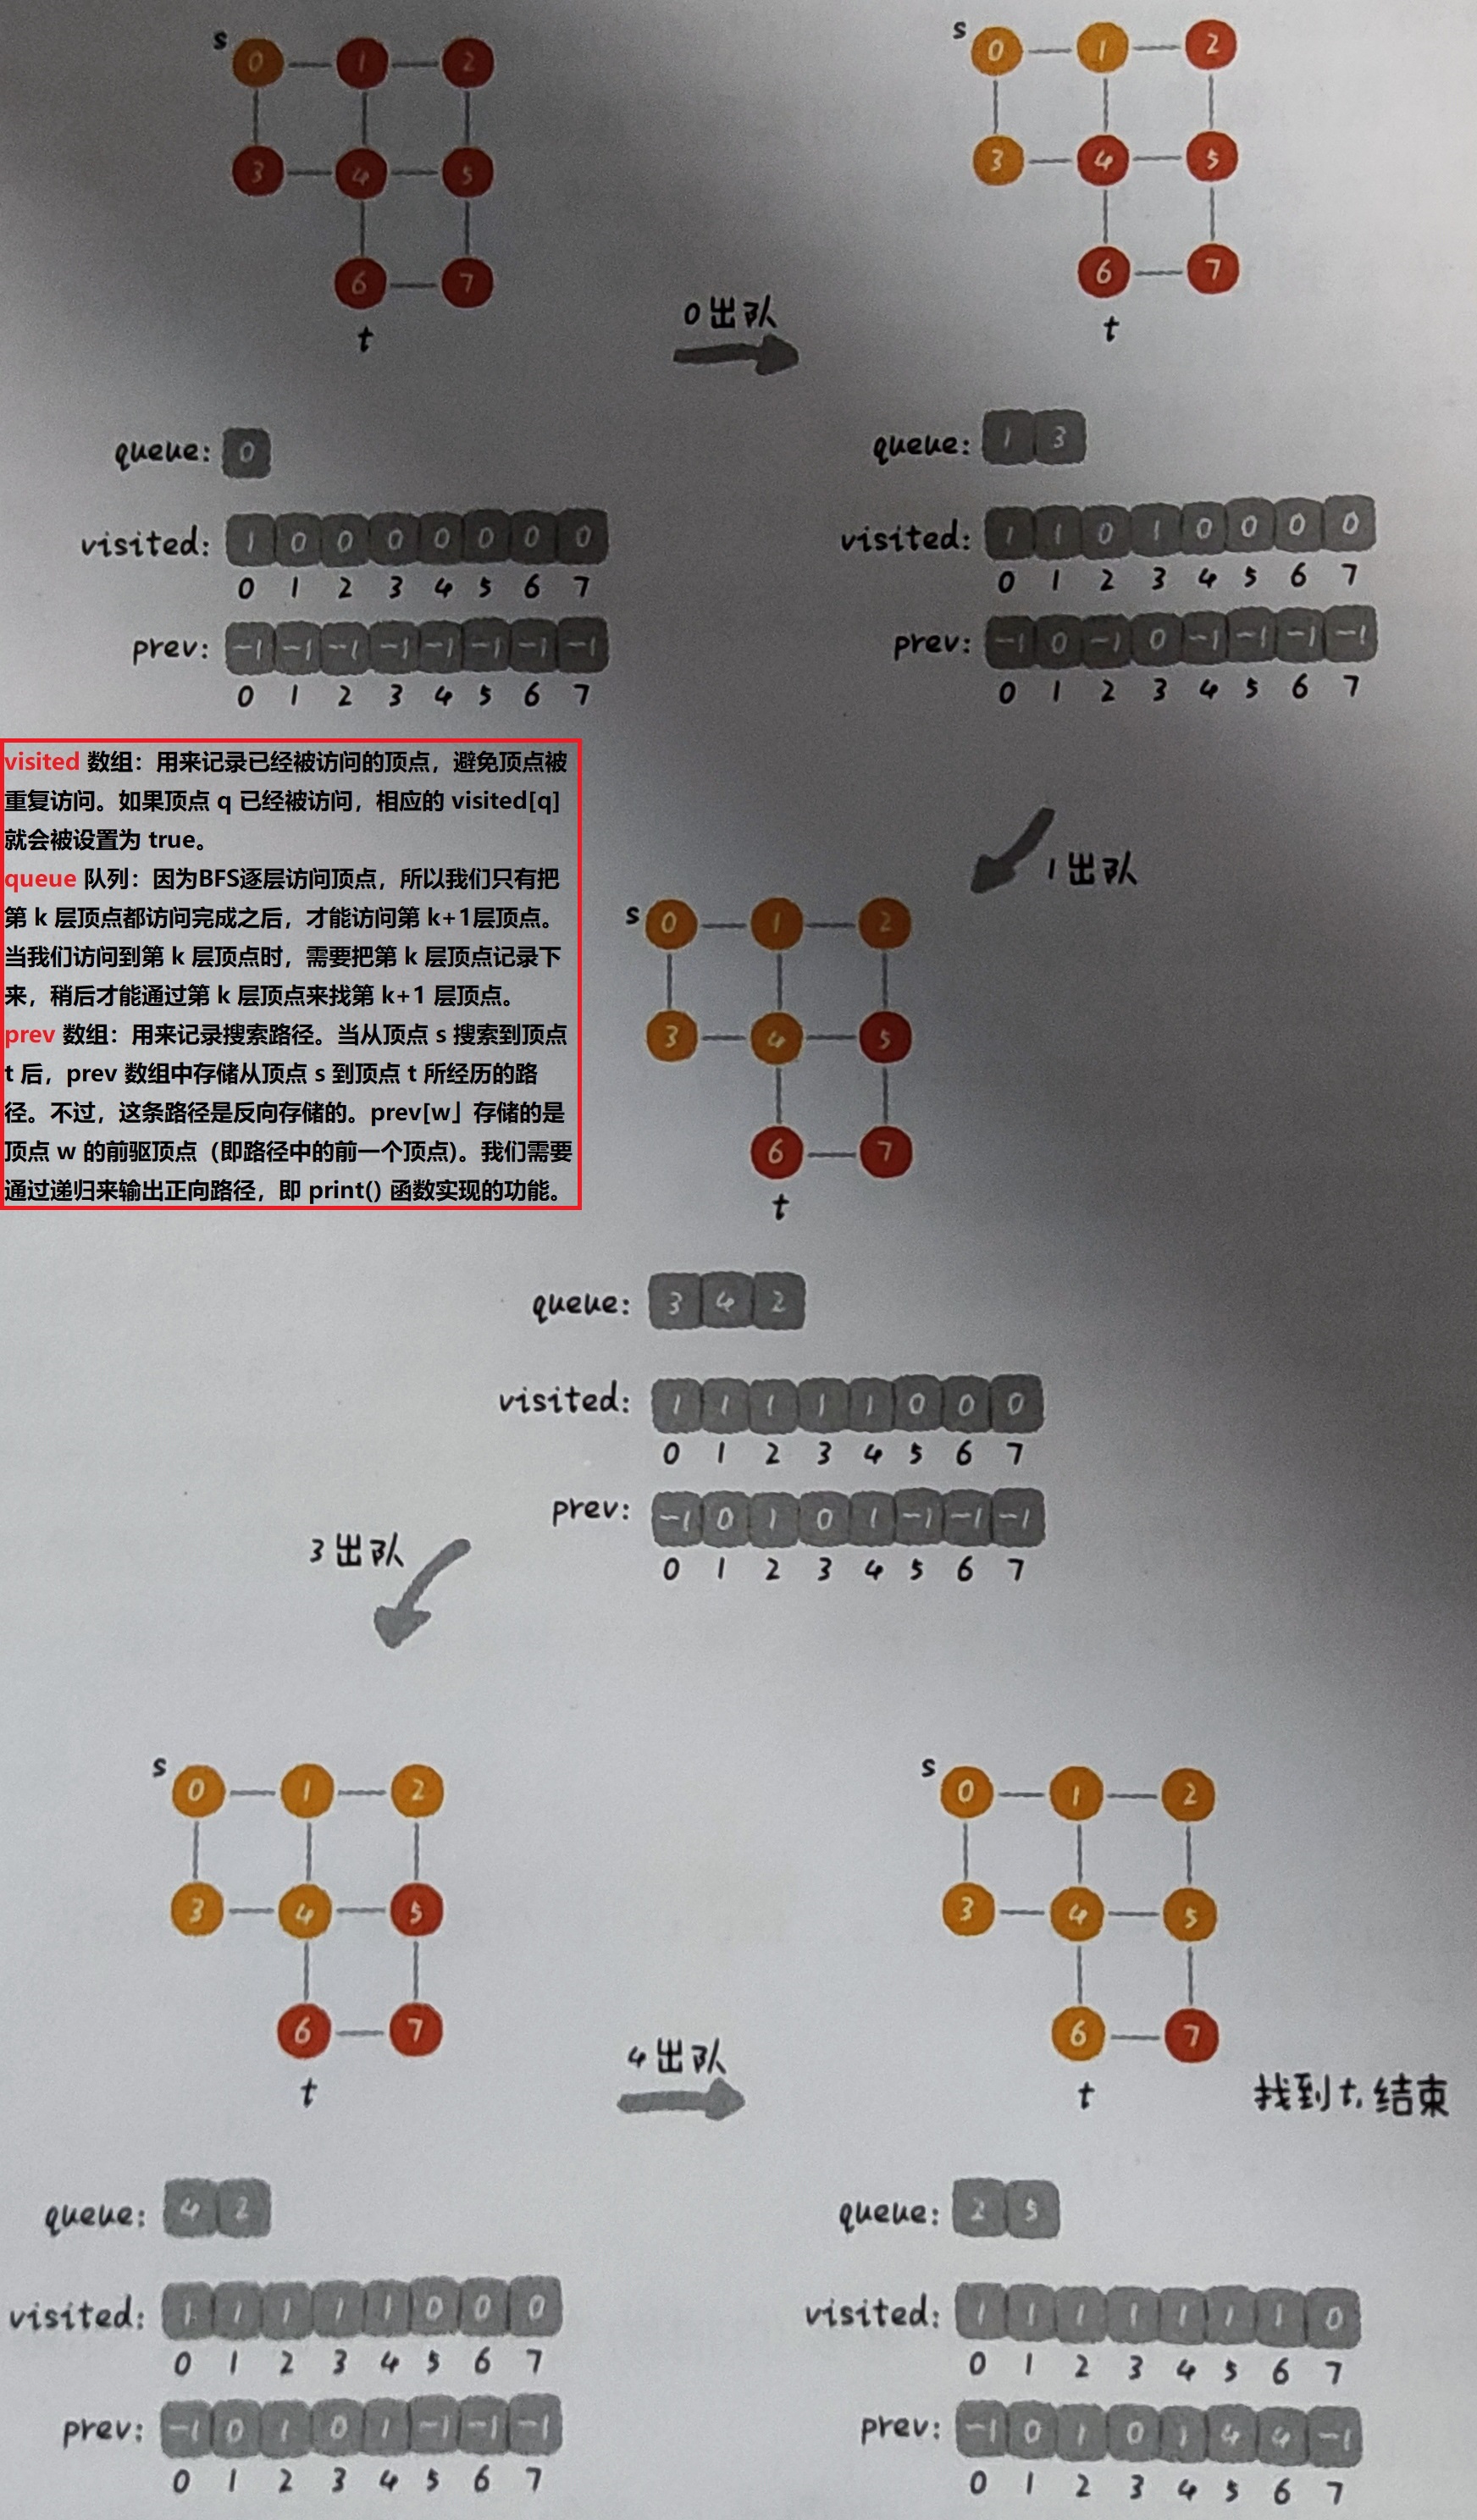 s
0 1 2
3 4 5
6 7
t
queue: 0
visited: 1 0 0 0 0 0 0 0
0 1 2 3 4 5 6 7
prev: -1 -1 -1 -1 -1 -1 -1 -1
0 1 2 3 4 5 6 7
0出队
s
0 1 2
3 4 5
6 7
t
queue: 1 3
visited: 1 1 0 1 0 0 0 0
0 1 2 3 4 5 6 7
prev: -1 0 -1 0 -1 -1 -1 -1
0 1 2 3 4 5 6 7
visited 数组：用来记录已经被访问的顶点，避免顶点被
重复访问。如果顶点 q 已经被访问，相应的 visited[q]
就会被设置为 true。
queue 队列：因为BFS逐层访问顶点，所以我们只有把
第 k 层顶点都访问完成之后，才能访问第 k+1层顶点。
当我们访问到第 k 层顶点时，需要把第 k 层顶点记录下
来，稍后才能通过第 k 层顶点来找第 k+1 层顶点。
prev 数组：用来记录搜索路径。当从顶点 s 搜索到顶点
t 后，prev 数组中存储从顶点 s 到顶点 t 所经历的路
径。不过，这条路径是反向存储的。prev[w」存储的是
顶点 w 的前驱顶点（即路径中的前一个顶点)。我们需要
通过递归来输出正向路径，即 print() 函数实现的功能。
1出队
s
0 1 2
3 4 5
6 7
t
queue: 3 4 2
visited: 1 1 1 1 1 0 0 0
0 1 2 3 4 5 6 7
prev: -1 0 1 0 1 -1 -1 -1
0 1 2 3 4 5 6 7
3出队
s
0 1 2
3 4 5
6 7
t
queue: 4 2
visited: 1 1 1 1 1 0 0 0
0 1 2 3 4 5 6 7
prev: -1 0 1 0 1 -1 -1 -1
0 1 2 3 4 5 6 7
4出队
s
0 1 2
3 4 5
6 7
t
找到t,结束
queue: 2 5
visited: 1 1 1 1 1 1 1 0
0 1 2 3 4 5 6 7
prev: -1 0 1 0 1 4 4 -1
0 1 2 3 4 5 6 7